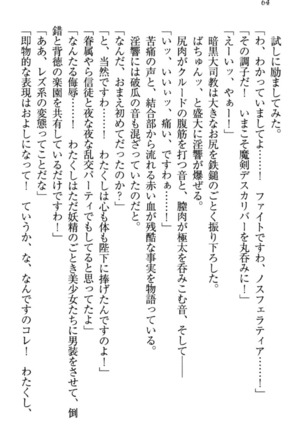 64
試しに励ましてみた。
「わ、わかっていましてよ……！　ファイトですわ、ノスフェラティア……！」
「その調子だ！　いまこそ魔剣デスカリバーを丸呑みに！」
「えーいッ、やぁーー！」
暗黒大司教は大きなお尻を鉄鎚のごとく振り下ろした。
ばちゅんッ、と盛大に淫響が爆ぜる。
尻肉がクルードの腹筋を打つ音と、膣肉が極太を呑みこむ音、そして――
「いっ、いいいッ、痛い、ですわぁ……！」
苦痛の声と、結合部から流れる赤い血が残酷な事実を物語っている。
淫響には破瓜の音も混ざっていたのだと。
「なんだ、おまえ初めてだったのか？」
「と、当然ですわ！　わたくしは心も体も陛下に捧げたんですのよ！」
「眷属やら信徒と夜な夜な乱交パーティでもしてると思ってたよ」
「なんたる侮辱……！　わたくしはただ妖精のごとき美少女たちに男装をさせて、倒
錯と背徳の楽園を共有しているだけですわ！」
「ああ、レズ系の変態ってことだな」
「即物的な表現はおよしになって！　ていうか、な、なんですのコレ！　わたくし、